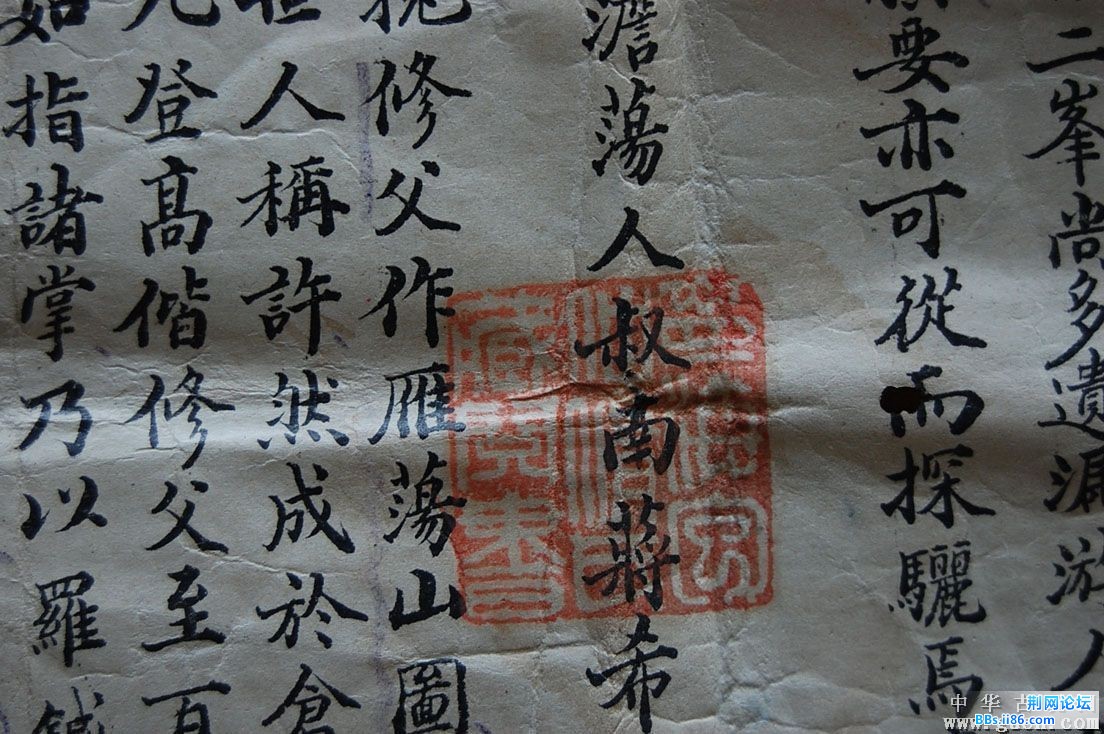 二峯尚多遺漏游人
要亦可從而探驪焉
澹蕩人叔南蔣希
修父作雁蕩山圖
人稱許然成於倉
登高偕修父至百
如指諸掌乃以羅鍼
中华古
荆网论坛
BBs.jj86.com